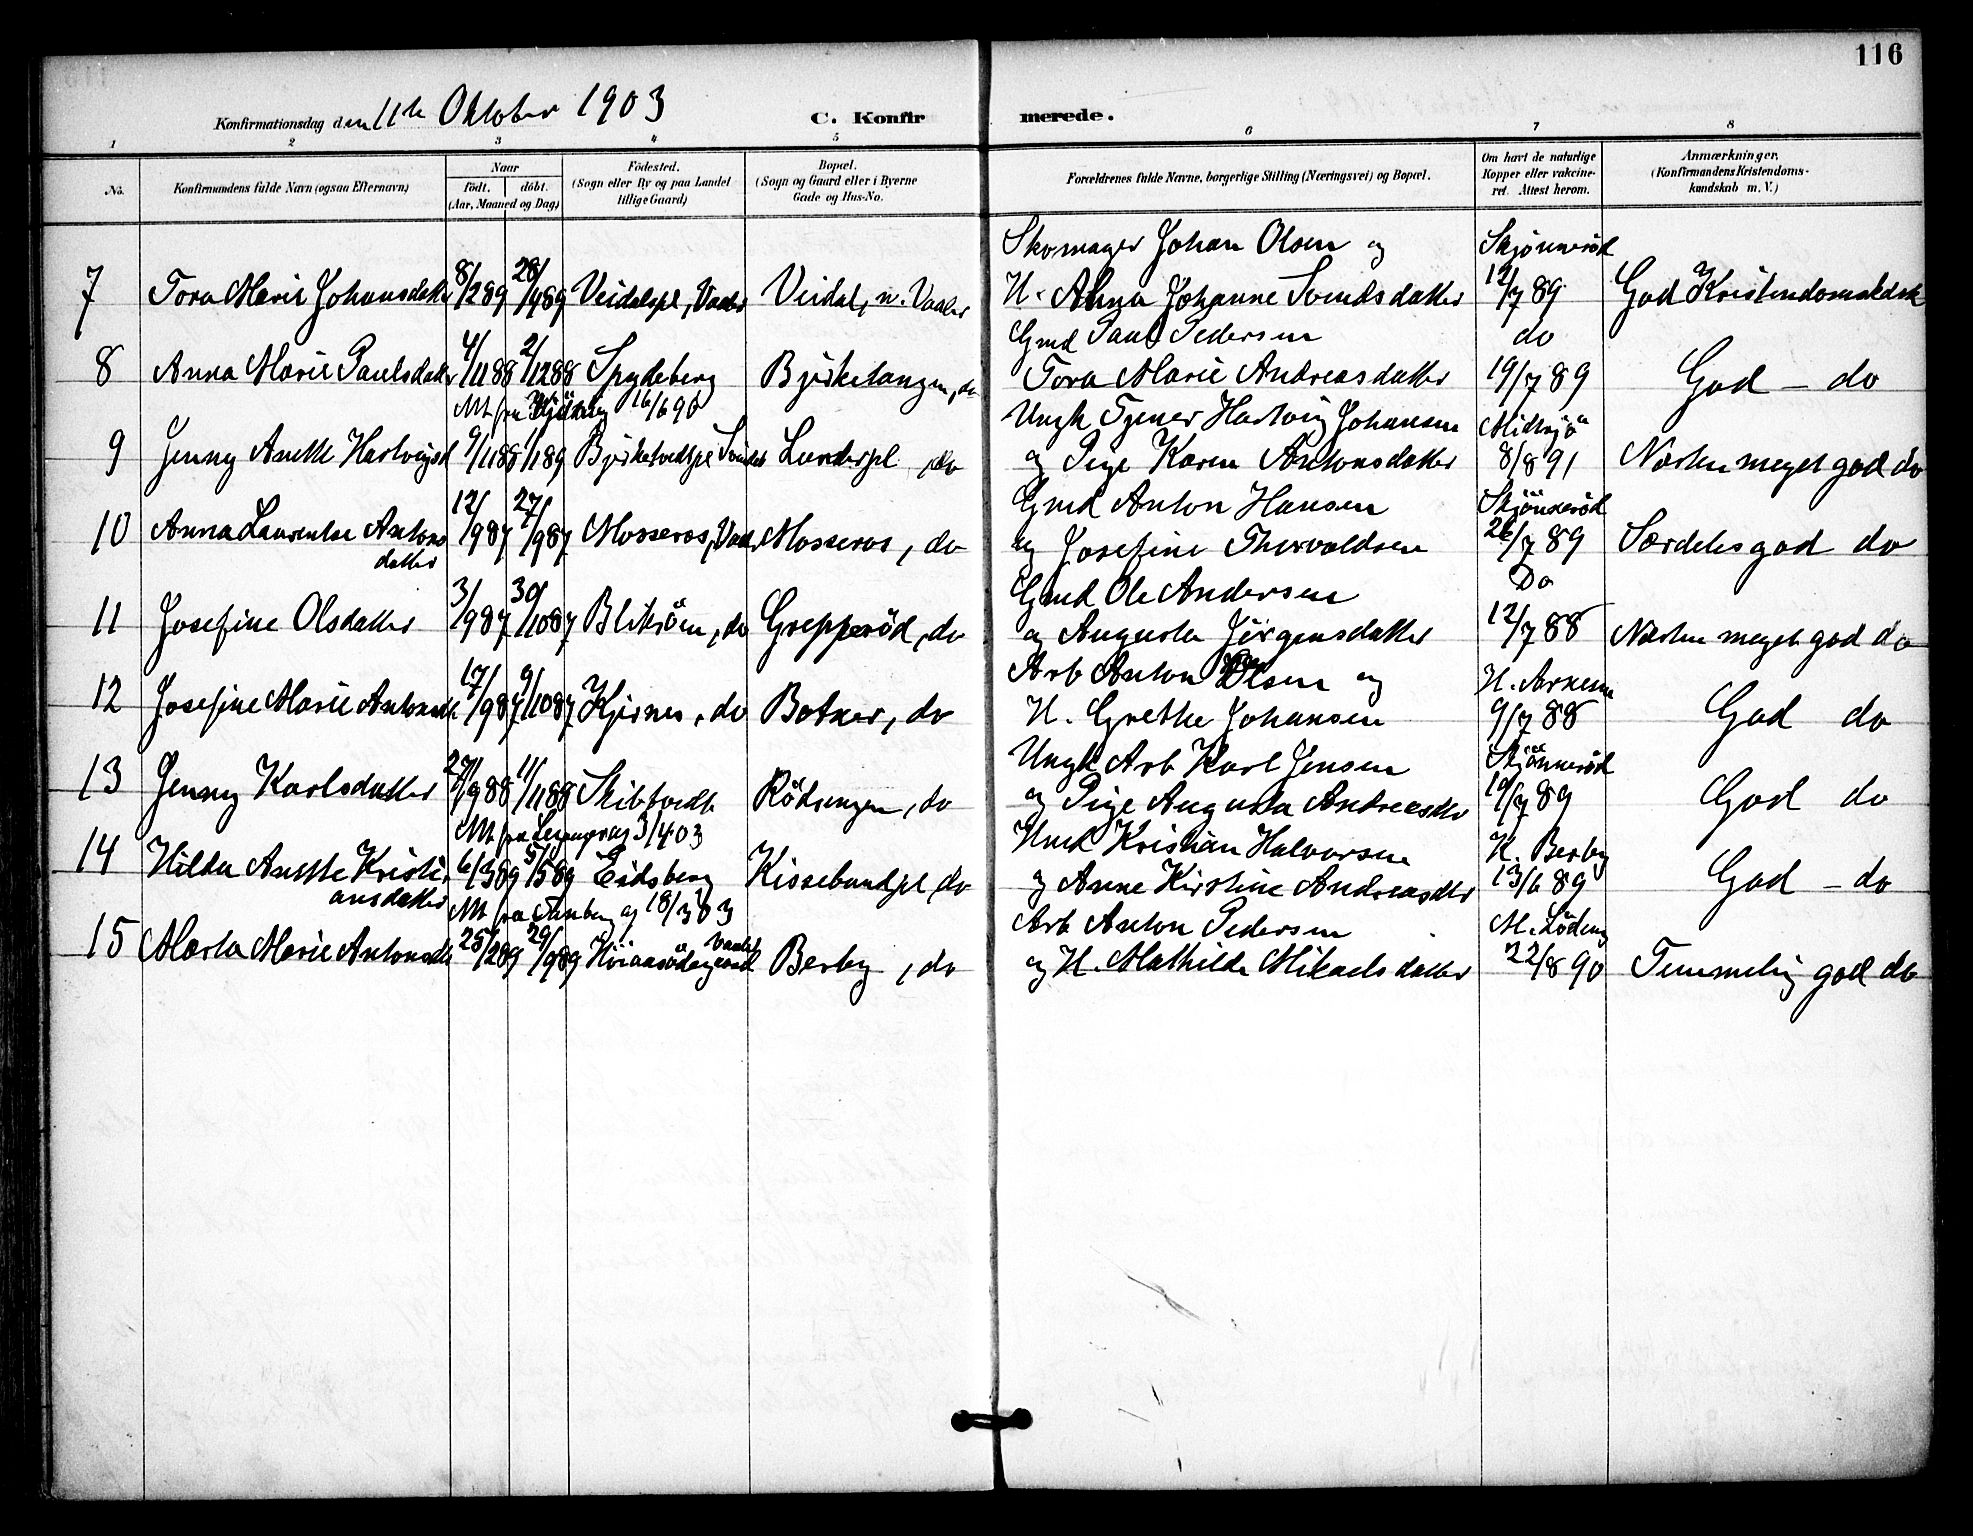 116
Konfirmationsdag den 11te Oktober 1903 C. Konfirmerede.
1 2 3 4 5 6 7 8
No. Konfirmandens fulde Navn (ogsaa Efternavn) Naar født. døbt. (Aar, Maaned og Dag) Födested. (Sogn eller By og paa Landet tillige Gaard) Bopæl. (Sogn og Gaard eller i Byerne Gade og Hus-No. Forældrenes fulde Navne, borgerlige Stilling (Næringsvei) og Bopæl. Om havt de naturlige Kopper eller vakcineret. Attest herom. Anmærkninger. (Konfirmandens Kristendomskundskab m. V.)
Skomager Johan Olsen og Skjønneröd
7 Tora Marie Johansdatter 8/2 89 28/4 89 Veidalspl, Vaaler Veidal, n. Vaaler H. Anna Johanne Svendsdatter 12/7 89 God Kristendomskdsk
Gmd Paul Pedersen do
8 Anna Marie Paulsdatter 4/11 88 2/12 88 Spydeberg Bjirketangen, do Tora Marie Andreasdatter 19/7 89 God - do
Att fra 16/6 90 Ungk Tjener Hartvig Johansen Midtsjö
9 Jenny Anette Hartvigsd 9/11 88 1/1 89 Bjirketvedtpl Lunderpl, do og Pige Karen Antonsdatter 8/8 91 Næsten meget god do
Gmd Anton Hansen Skjönneröd
10 Anna Laurentse Antons 12/9 87 27/9 87 Mosseros, Vaaler Mosseros, do og Josefine Thorvaldsen 26/7 89 Særdeles god do
datter
Gmd Ole Andersen Do
11 Josefine Olsdatter 3/9 87 30/10 87 Bliksöen, do Grepperöd, do og Augusta Jörgensdatter 12/7 88 Næsten meget god do
Arb Anton Olsen og H. Arnesen
12 Josefine Marie Antonsdt 17/9 87 9/10 87 Kjirnes, do Botner, do H. Grethe Johansen 9/7 88 God do
Ungk Arb Karl Jensen Skjönneröd
13 Jenny Karlsdatter 27/9 88 11/11 88 Skibtvedt Rödsengen, do og Pige Augusta Andreasdtr 19/7 89 God do
Att fra 3/4 03 Hmd Kristian Halvorsen K. Berby
14 Hilda Anette Kristi- 6/3 89 5/5 89 Eidsberg Kissebundpl, do og Anne Kirstine Andreasdtr 13/6 89 God - do
ansdatter
Att fra 18/3 03 Arb Anton Pedersen M. Löken
15 Marta Marie Antonsdt 25/2 89 29/9 89 Vaaler Berby, do og H. Mathilde Mikaelsdatter 22/8 90 Temmelig god do